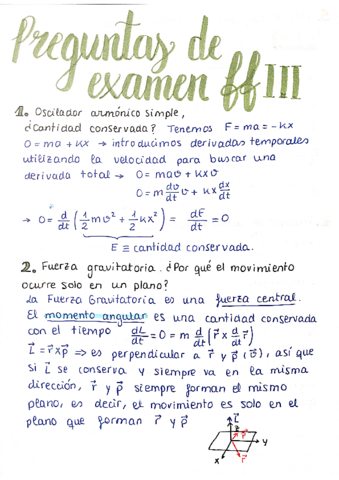 Preguntas de
examen ff III
1. Oscilador armónico simple,
¿Cantidad conservada? Tenemos F = ma = -kx
0 = ma + kx → introducimos derivadas temporales
utilizando la velocidad para buscar una
derivada total → 0 = mav + kxv
0 = m dv/dt v + kx dx/dt
→ 0 = d/dt (1/2 mv² + 1/2 kx²) = dE/dt = 0
E ≡ cantidad conservada.
2. Fuerza gravitatoria. ¿Por qué el movimiento
ocurre solo en un plano?
La Fuerza Gravitatoria es una fuerza central.
El momento angular es una cantidad conservada
con el tiempo dL/dt = 0 = m d/dt (r⃗ x d/dt r⃗)
L⃗ = r⃗ x p⃗ ⇒ es perpendicular a r⃗ y p⃗ (v⃗), así que
si L⃗ se conserva y siempre va en la misma
dirección, r⃗ y p⃗ siempre forman el mismo
plano, es decir, el movimiento es solo en el
plano que forman r⃗ y p⃗
L⃗
p⃗
y
x
r⃗